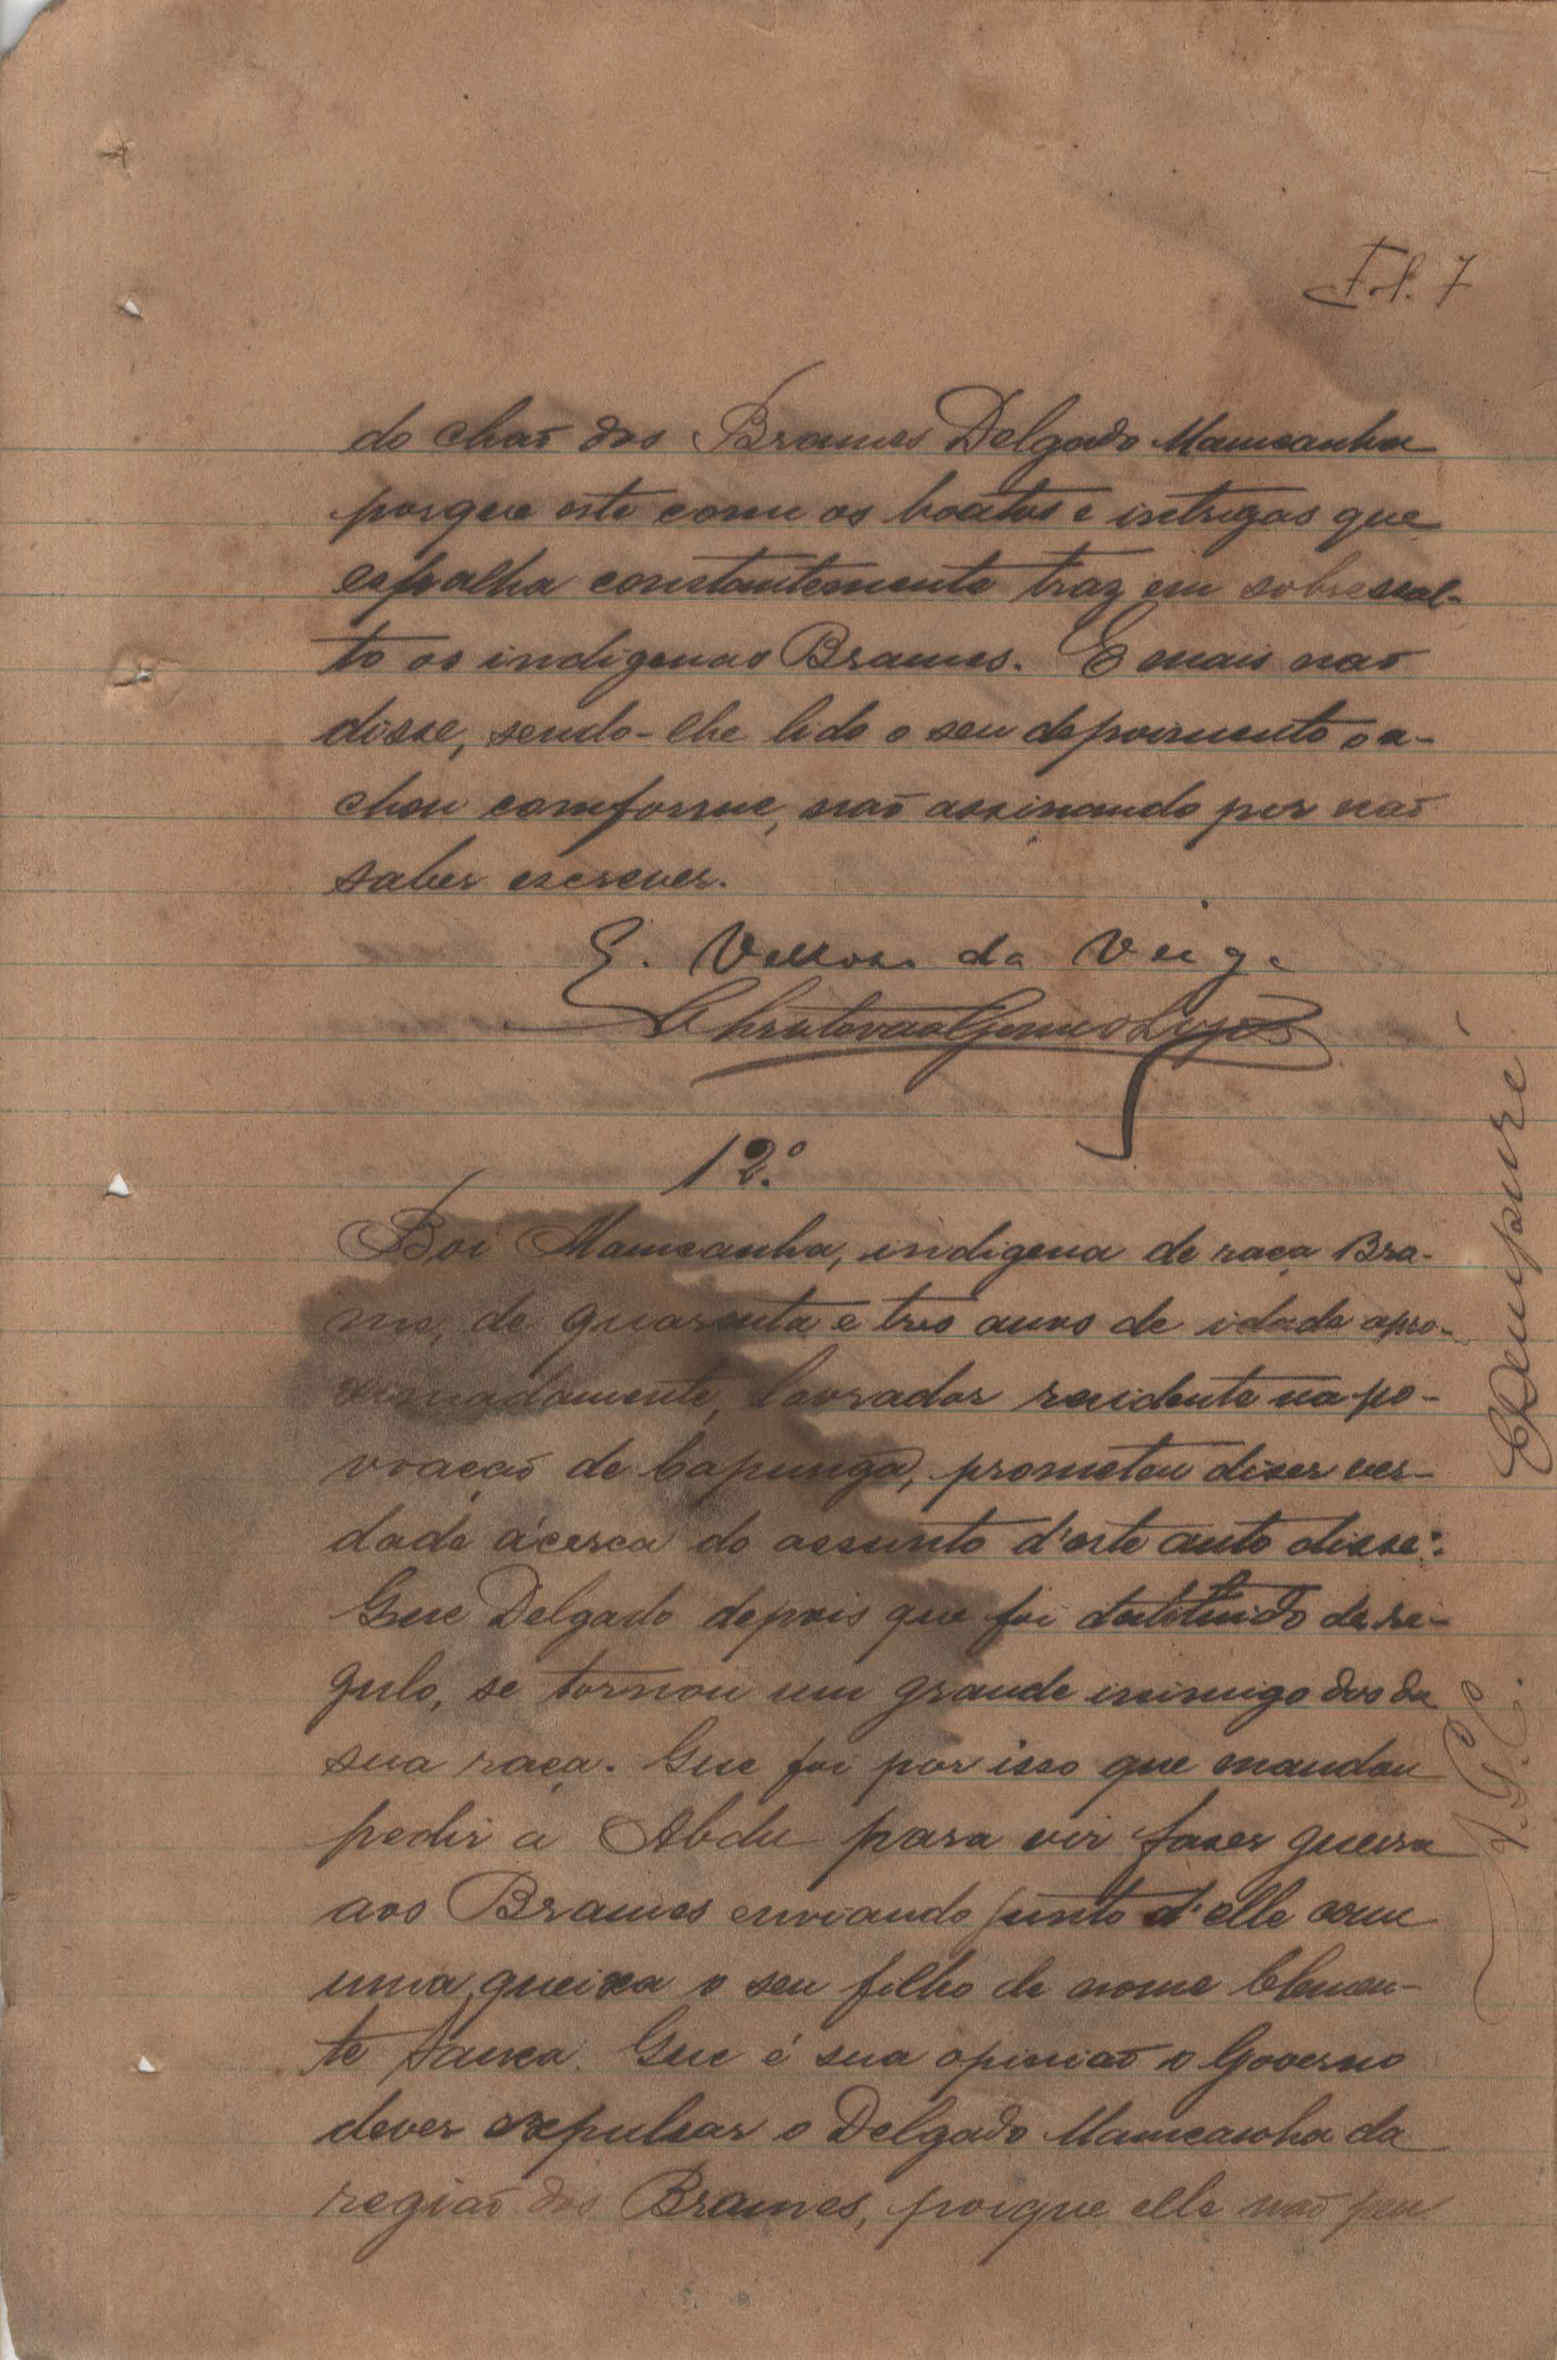 Fol. 7
do chaõ dos Brames Delgado Mamcanha
porque este com os boatos e intrigas que
espalha constantemente traz em sobresal-
to os indigenas Brames. E mais naõ
disse, sendo-lhe lido o seu depoimento o a-
chou comforme, naõ assinando por naõ
saber escrever.
E. Velloso da Veiga
Christovaõ Gomes Lopes
12.º
Boi Mamcanha, indigena de raça Bra-
me, de quarenta e tres anos de idade apro-
ximadamente, lavrador residente na po-
voaçaõ de Capunga, prometeu dizer ver-
dade ácerca do assunto d'este auto disse:
Que Delgado depois que foi destituido de re-
gulo, se tornou um grande inimigo dos da
sua raça. Que foi por isso que mandou
pedir a Abdu para vir fazer guerra
aos Brames enviando junto d'elle com
uma queixa o seu filho de nome Clemen-
te Sanca. Que é sua opiniaõ o Governo
dever expulsar o Delgado Mamcanha da
regiaõ dos Brames, porque elle naõ